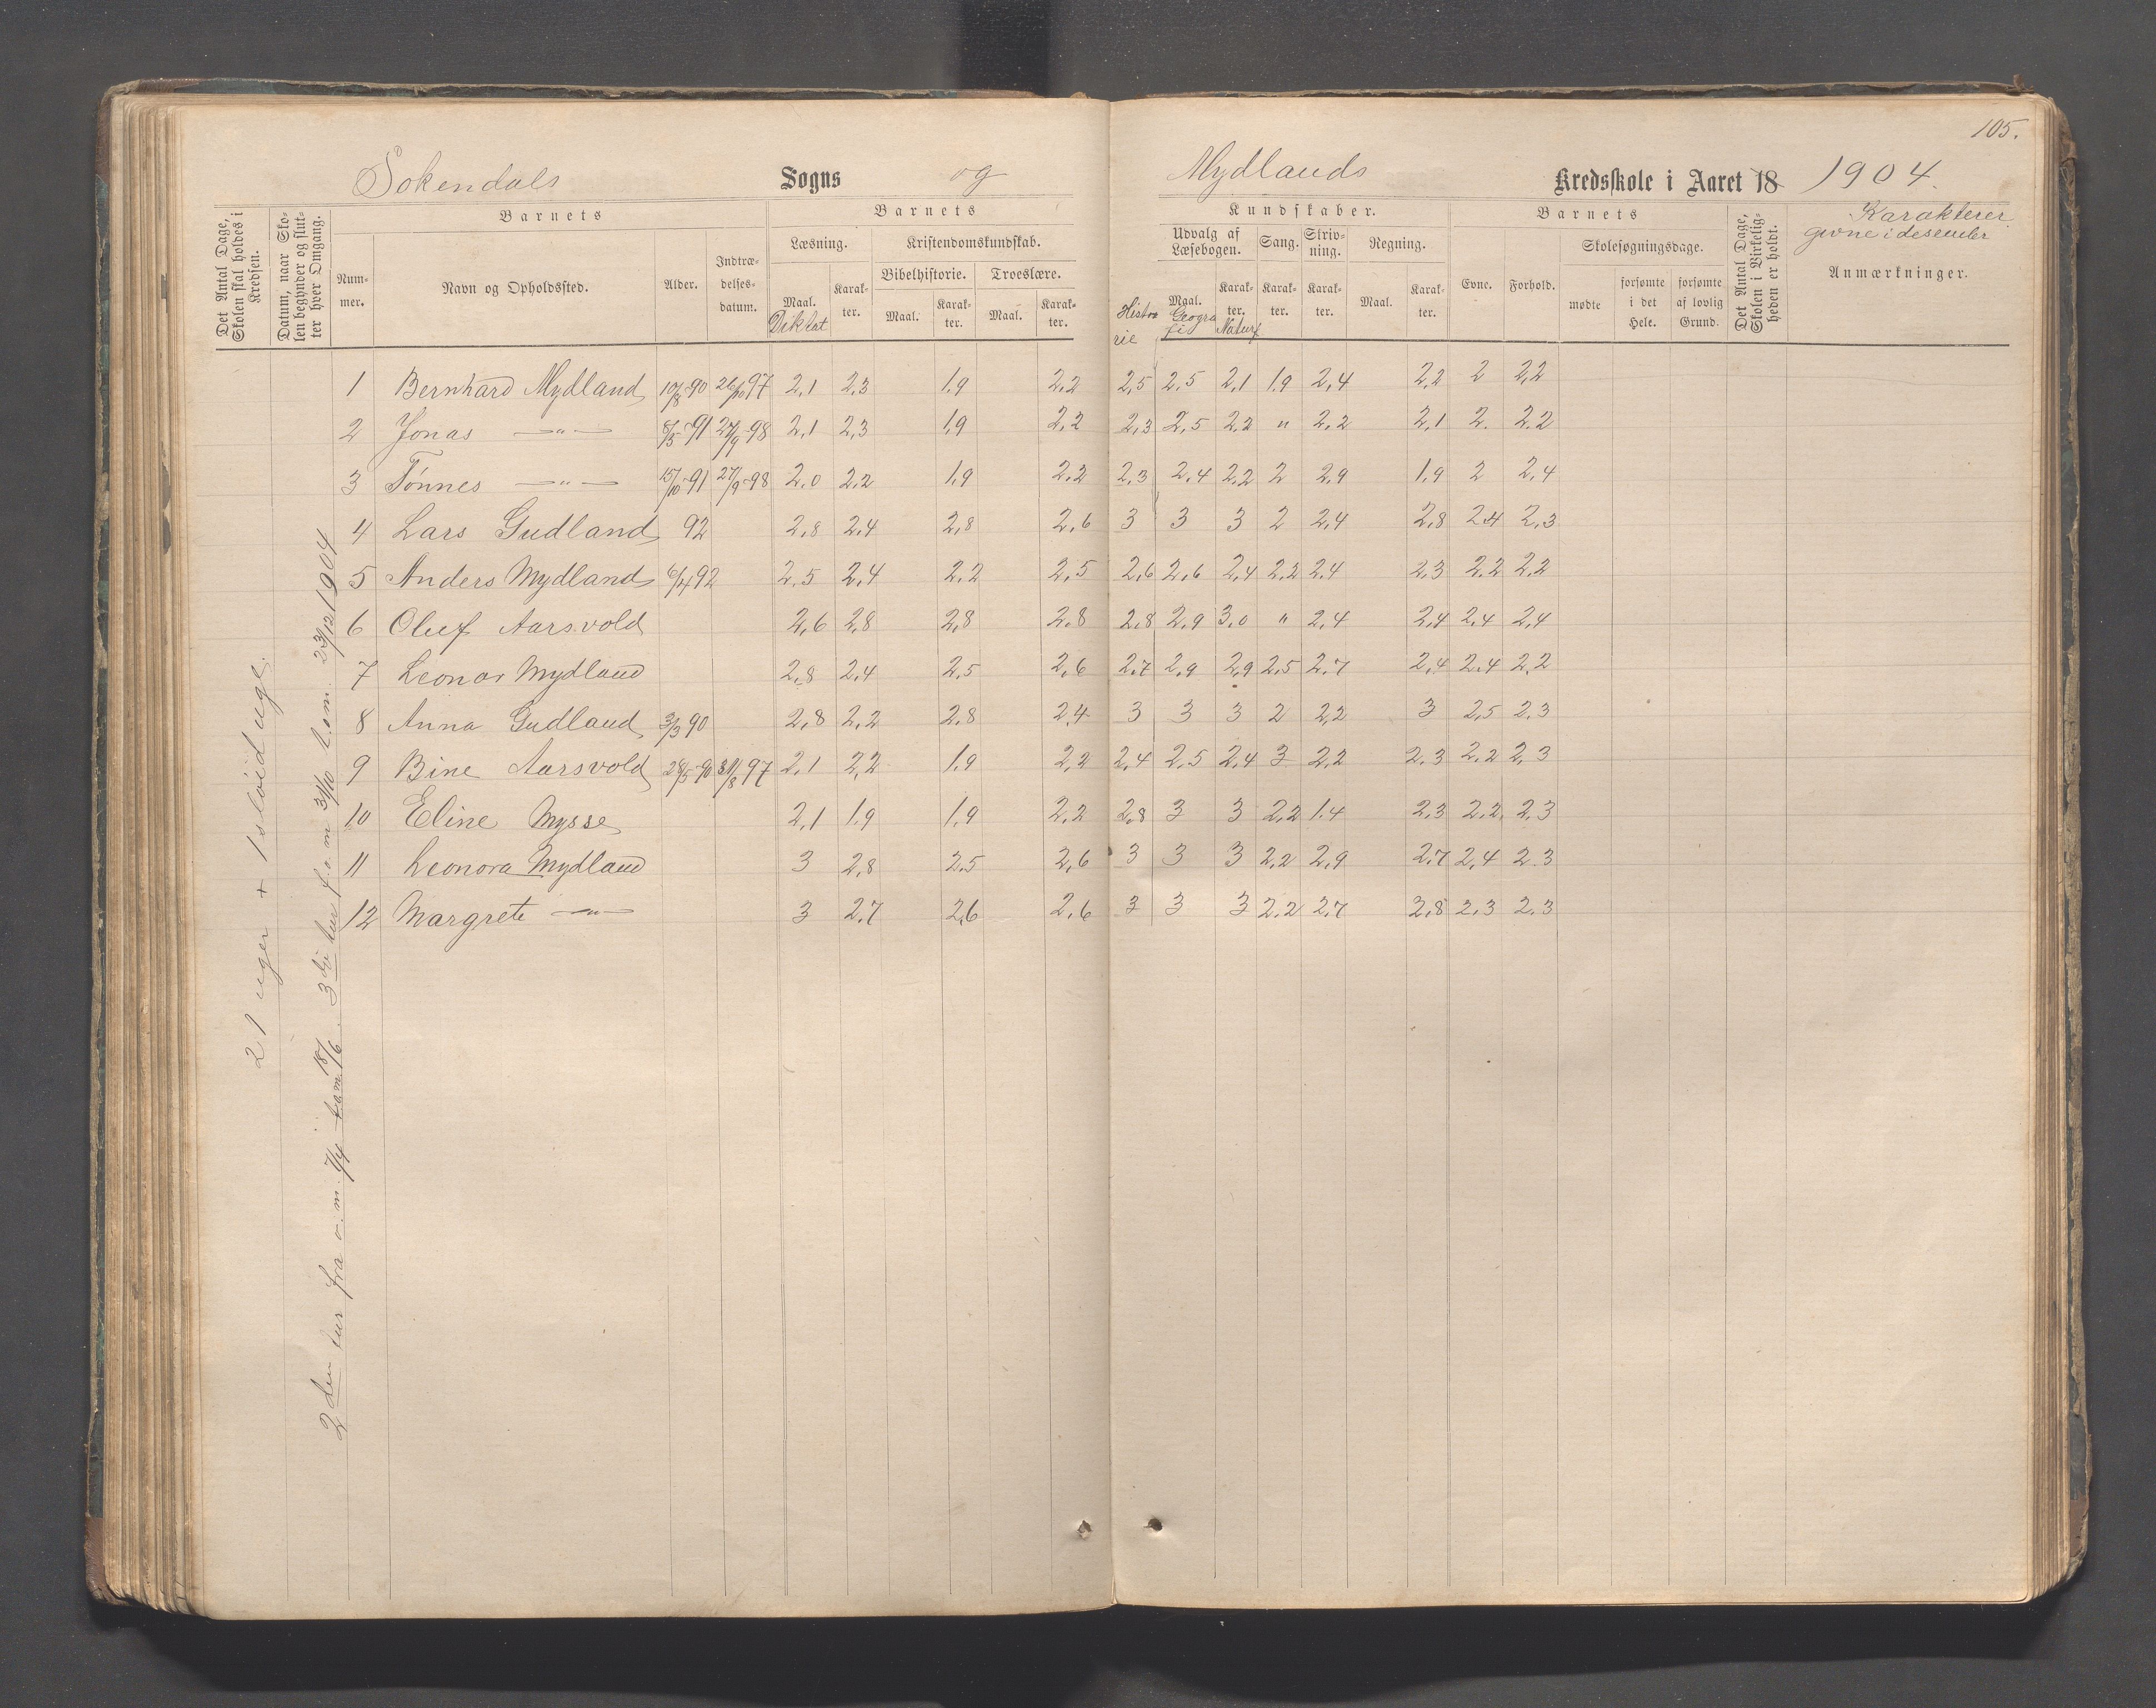 105.
Sokendals Sogns og Mydlands Kredsskole i Aaret 18 1904.
Det Antal Dage, Skolen skal holdes i Kredsen.
Datum, naar Skolen begynder og slutter hver Omgang.
Barnets
Nummer.
Navn og Opholdssted.
Alder.
Indtrædelsesdatum.
Barnets
Læsning.
Kristendomskundskab.
Bibelhistorie.
Troeslære.
Maal. Karakter. Maal. Karakter. Maal. Karakter.
Diktat
Kundskaber.
Udvalg af Læsebogen.
Sang.
Skrivning.
Regning.
Maal. Karakter. Karakter. Karakter. Maal. Karakter.
Historie Geografi Naturf
Barnets
Evne.
Forhold.
Skolesøgningsdage.
mødte
forsømte i det Hele.
forsømte af lovlig Grund.
Det Antal Dage, Skolen i Virkeligheden er holdt.
Karakterer
givne i desember
Anmærkninger.
1 Bernhard Mydland 10/8-90 26/10 97 2,1 2,3 1,9 2,2 2,5 2,5 2,1 1,9 2,4 2,2 2 2,2
2 Jonas —"— 8/5-91 27/9-98 2,1 2,3 1,9 2,2 2,3 2,5 2,2 " 2,2 2,1 2. 2.2
3 Tønnes —"— 15/10-91 27/9-98 2,0 2,2 1,9 2,2 2,3 2,4 2,2 2 2,9 1,9 2 2,4
4 Lars Gudland 92 2,8 2,4 2,8 2,6 3 3 3 2 2,4 2,8 2,4 2,3
5 Anders Mydland 6/4 92 2,5 2,4 2,2 2,5 2,6 2,6 2,4 2,2 2,4 2,3 2,2 2,2
6 Oluf Aarsvold 2,6 2,8 2,8 2,8 2,8 2,9 3,0 " 2,4 2,4 2,4 2,4
7 Leonar Mydland 2,8 2,4 2,5 2,6 2,7 2,9 2,9 2,5 2,7 2,4 2,4 2,2
8 Anna Gudland 3/3 90 2,8 2,2 2,8 2,4 3 3 3 2 2,2 3 2,5 2,3
9 Bine Aarsvold 28/5-90 31/8 97 2,1 2,2 1,9 2,2 2,4 2,5 2,4 3 2,2 2,3 2,2 2,3
10 Eline Mysse 2,1 1,9 1,9 2,2 2,8 3 3 2,2 1,4 2,3 2,2, 2,3
11 Leonora Mydland 3 2,8 2,5 2,6 3 3 3 2,2 2,9 2,7 2,4 2.3
12 Margrete —"— 3 2,7 2,6 2,6 3 3 3 2,2 2,7 2,8 2,3 2,3
21 uger + 1 sløid uge.
2den tur fra o.m. 7/4 t.o.m. 18/6. 3die tur f.o.m 31/10 t.o.m. 23/12 1904